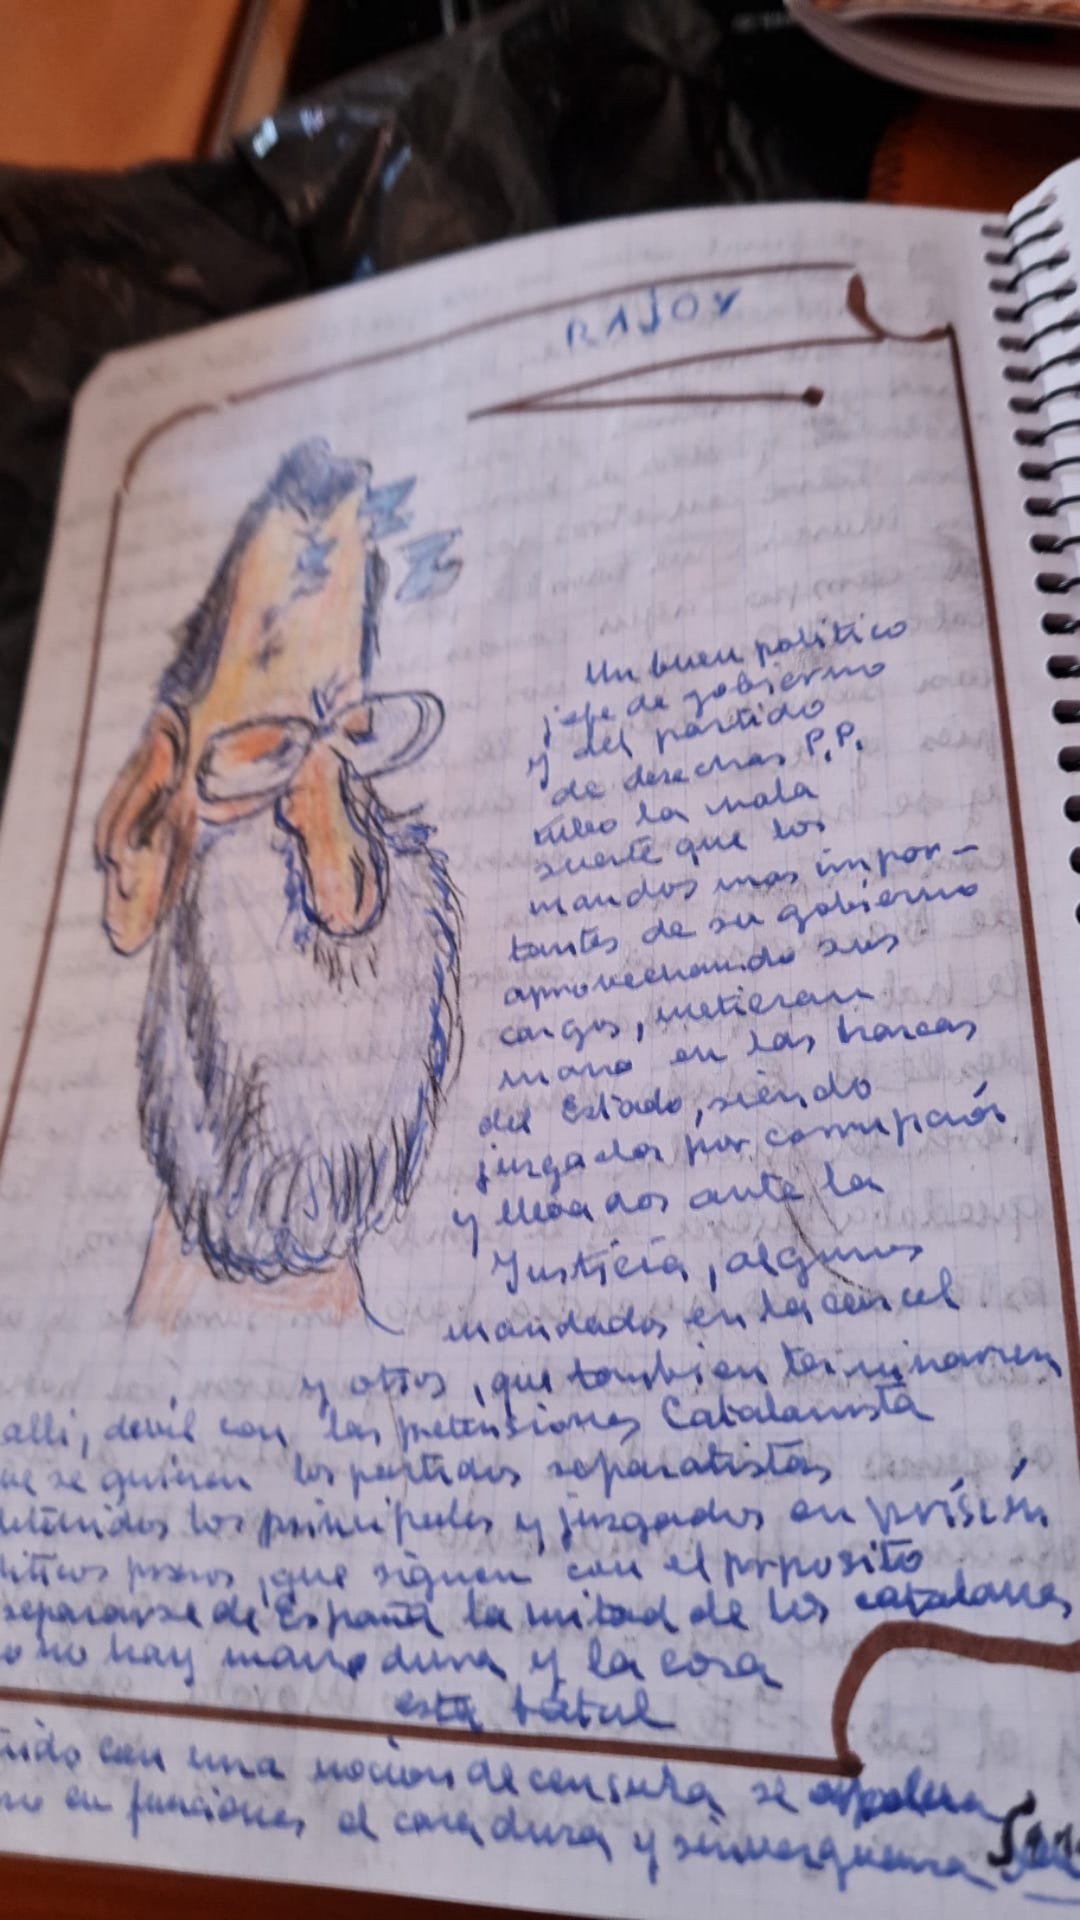 RAJOY
Un buen politico
jefe de gobierno
y del partido
de derechas P.P.
tubo la mala
suerte que los
mandos mas impor-
tantes de su gobierno
aprovechando sus
cargos, metieran
mano en las harcas
del Estado, siendo
juzgados por corrupción
y llevados ante la
Justicia, algunos
mandados en la carcel
y otros, que tambien terminarien
alli, devil con las pretensiones Catalanista
se quieren los partidos separatistas
detenidos los principales y juzgados en prisión
presos, que siguen con el proposito
separarse de España la mitad de los catalanes
no hay mano dura y la cosa
esta
con una mocion de censura se apodera
en funciones el cara dura y sinverguenza